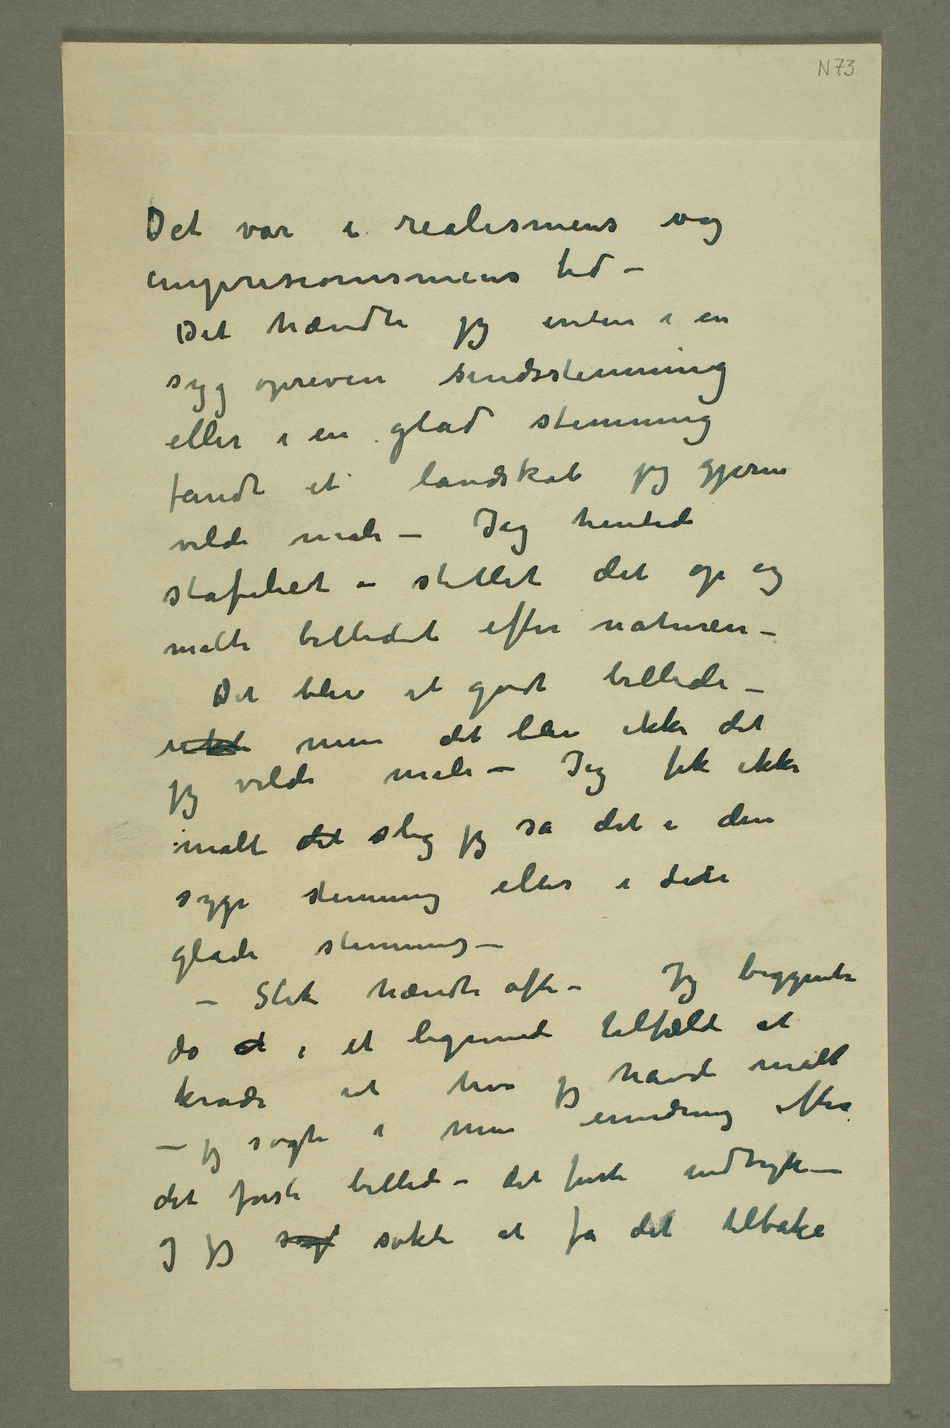 N 73
Det var i realismens og
impresionismens tid –
Det hændte jeg enten i en
syg opreven sindsstemning
eller i en glad stemning
fandt et landskab jeg gjerne
vilde male – Jeg hentede
stafeliet – stillet det op og
malte billedet efter naturen –
Det blev et godt billede –
men det blev ikke det
jeg vilde male – Jeg fik ikke
malt det slig jeg så det i den
syge stemning eller i den
glade stemning –
– Slik hændte ofte – Jeg begynte
da i et lignende tilfælde at
krade ut hva jeg havde malt
– jeg søgte i min erindring efter
det første billede – det første indtryk –
og jeg søkte at få det tilbake